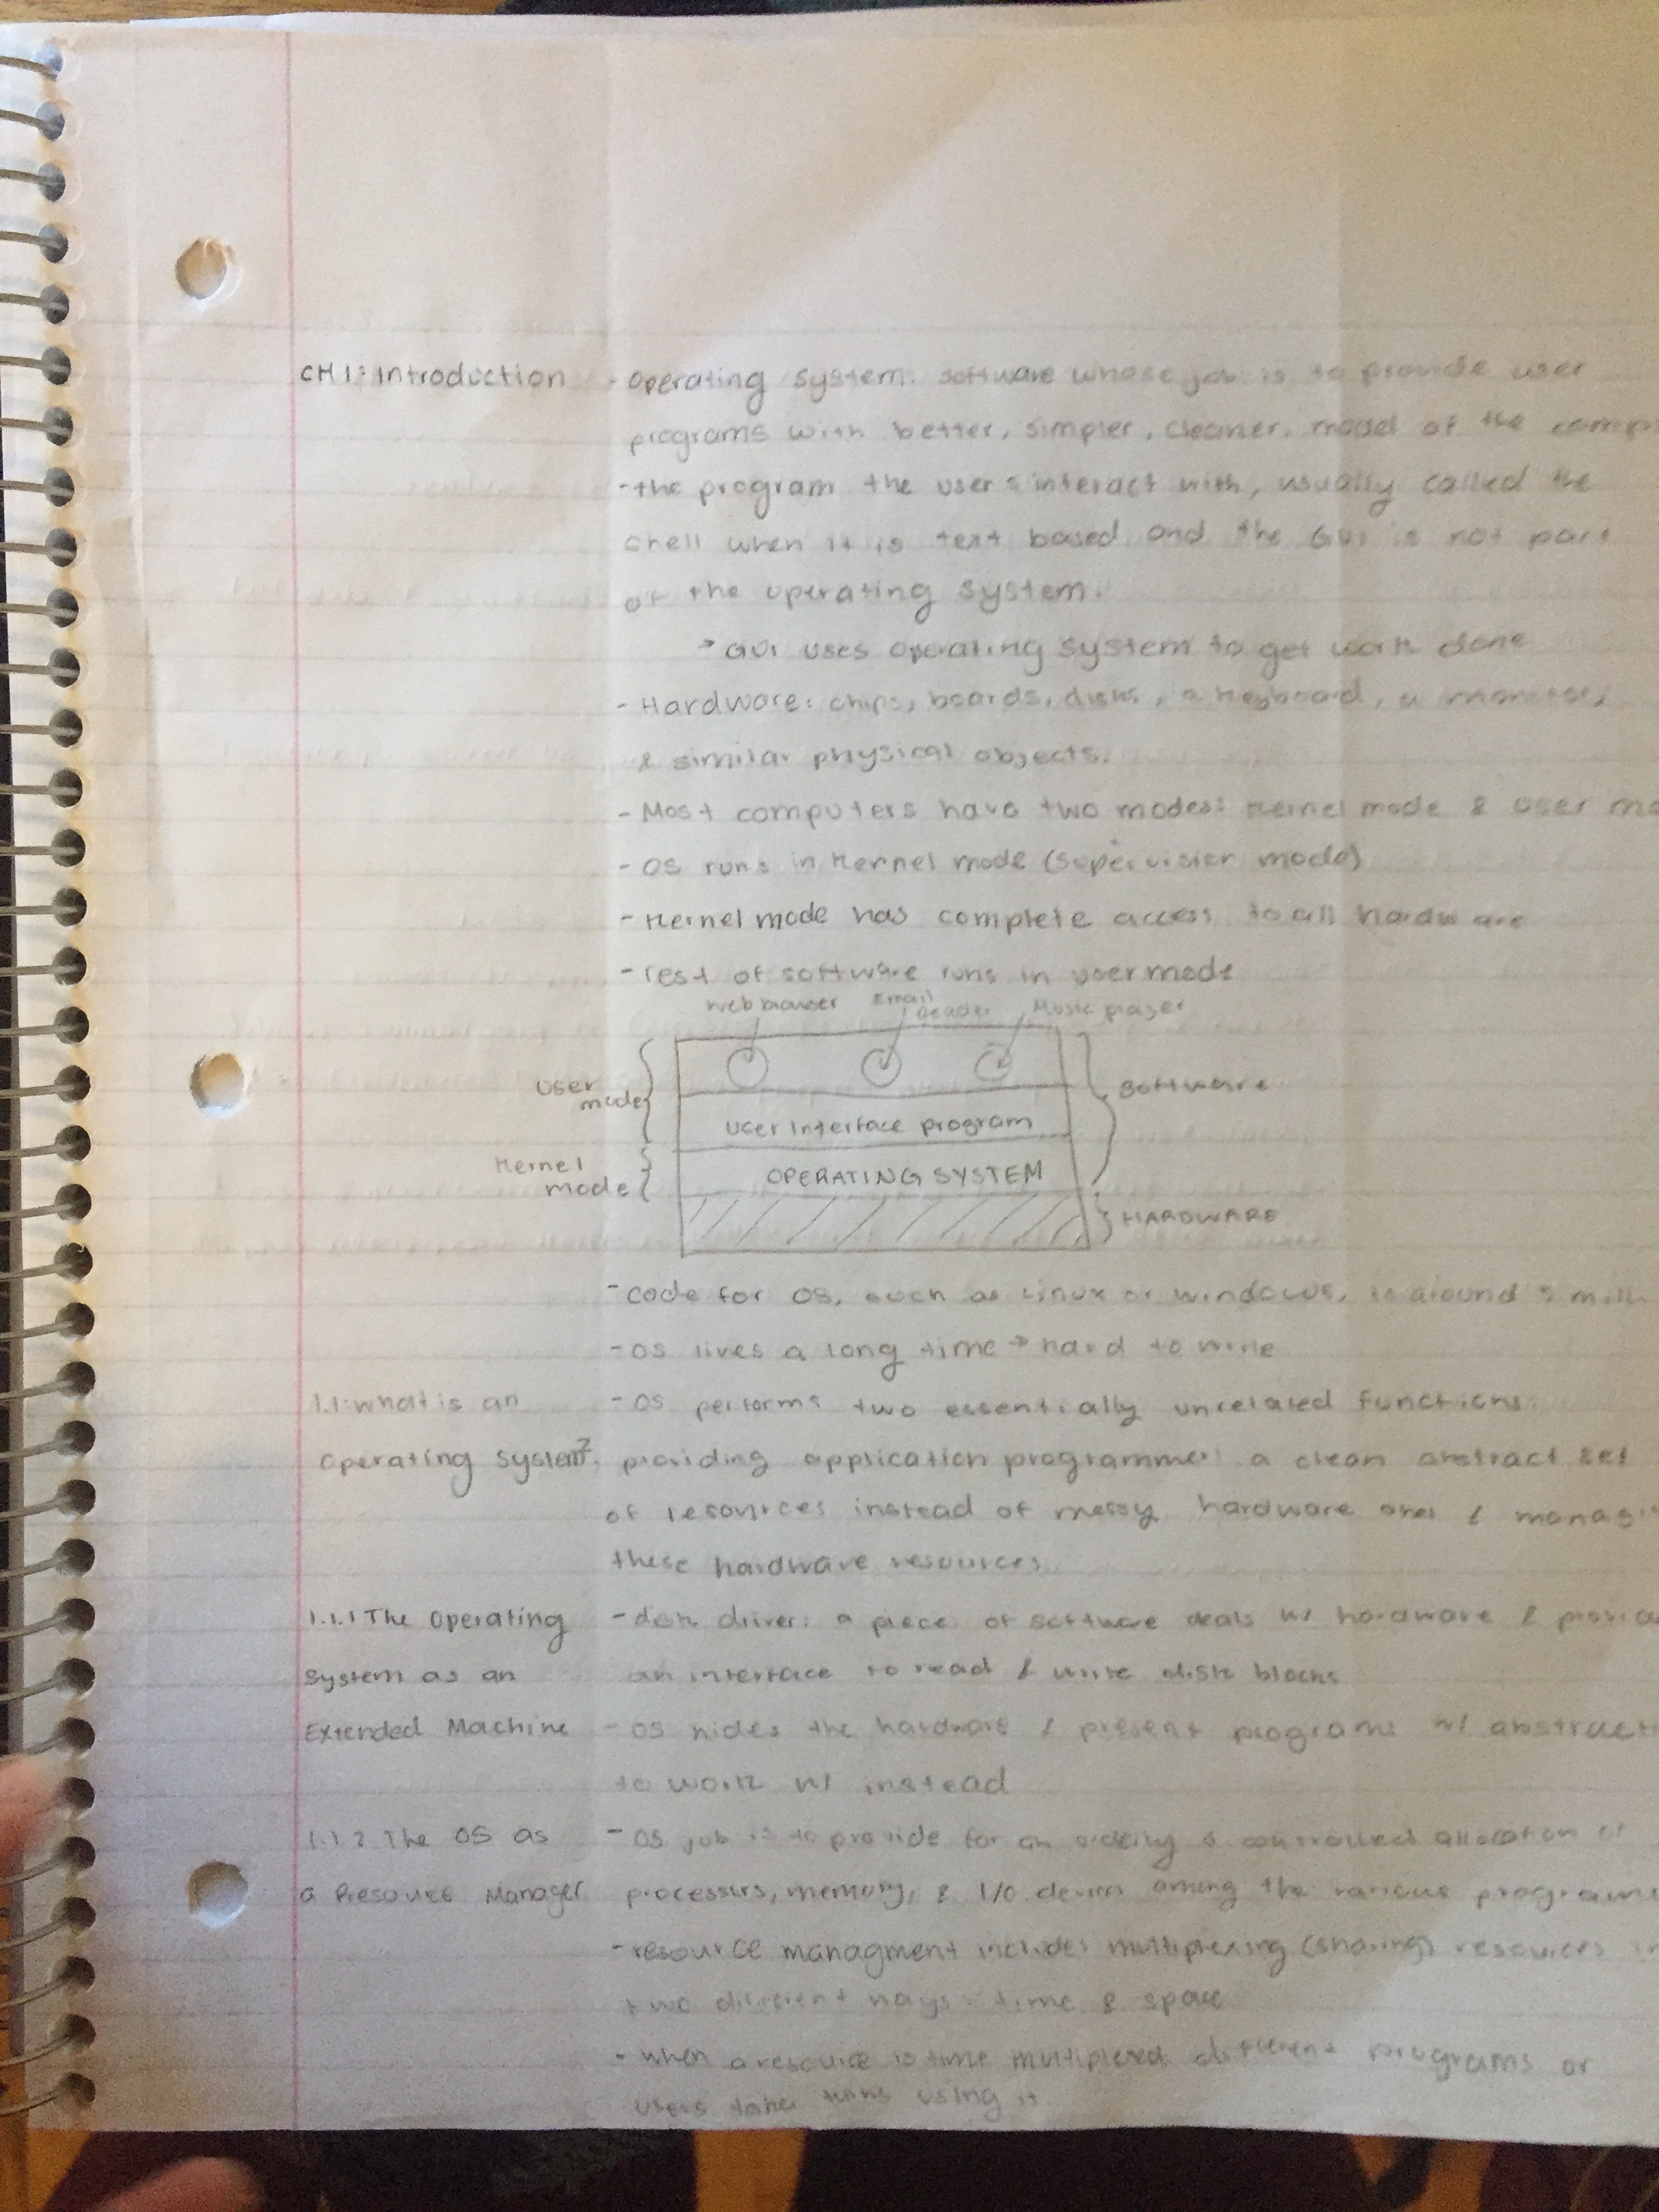 CH 1: Introduction - Operating System: software whose job is to provide user
programs with better, simpler, cleaner, model of the comp
- the program the users interact with, usually called the
shell when it is text based and the GUI is not part
of the operating system.
→ GUI uses operating system to get work done
- Hardware: chips, boards, disks, a keyboard, a monitor,
& similar physical objects.
- Most computers have two modes: kernel mode & user mo
- OS runs in kernel mode (supervision mode)
- Kernel mode has complete access to all hardware
- rest of software runs in user mode
Web browser Email Reader Music player
User mode
Software
User Interface program
Kernel mode
OPERATING SYSTEM
HARDWARE
- code for OS, such as Linux or windows, is around 5 mill
- OS lives a long time → hard to write
1.1: what is an - OS performs two essentially unrelated functions:
Operating System? providing application programmers a clean abstract set
of resources instead of messy hardware ones & managi
these hardware resources.
1.1.1 The Operating - disk driver: a piece of software deals w/ hardware & provid
System as an an interface to read & write disk blocks
Extended Machine - OS hides the hardware & present programs w/ abstracti
to work w/ instead
1.1.2 The OS as - OS job is to provide for an orderly & controlled allocation of
a Resource Manager processors, memory, & I/O devices among the various programs
- resource managment includes multiplexing (sharing) resources in
two different ways: time & space
- when a resource is time multiplexed different programs or
users take turns using it